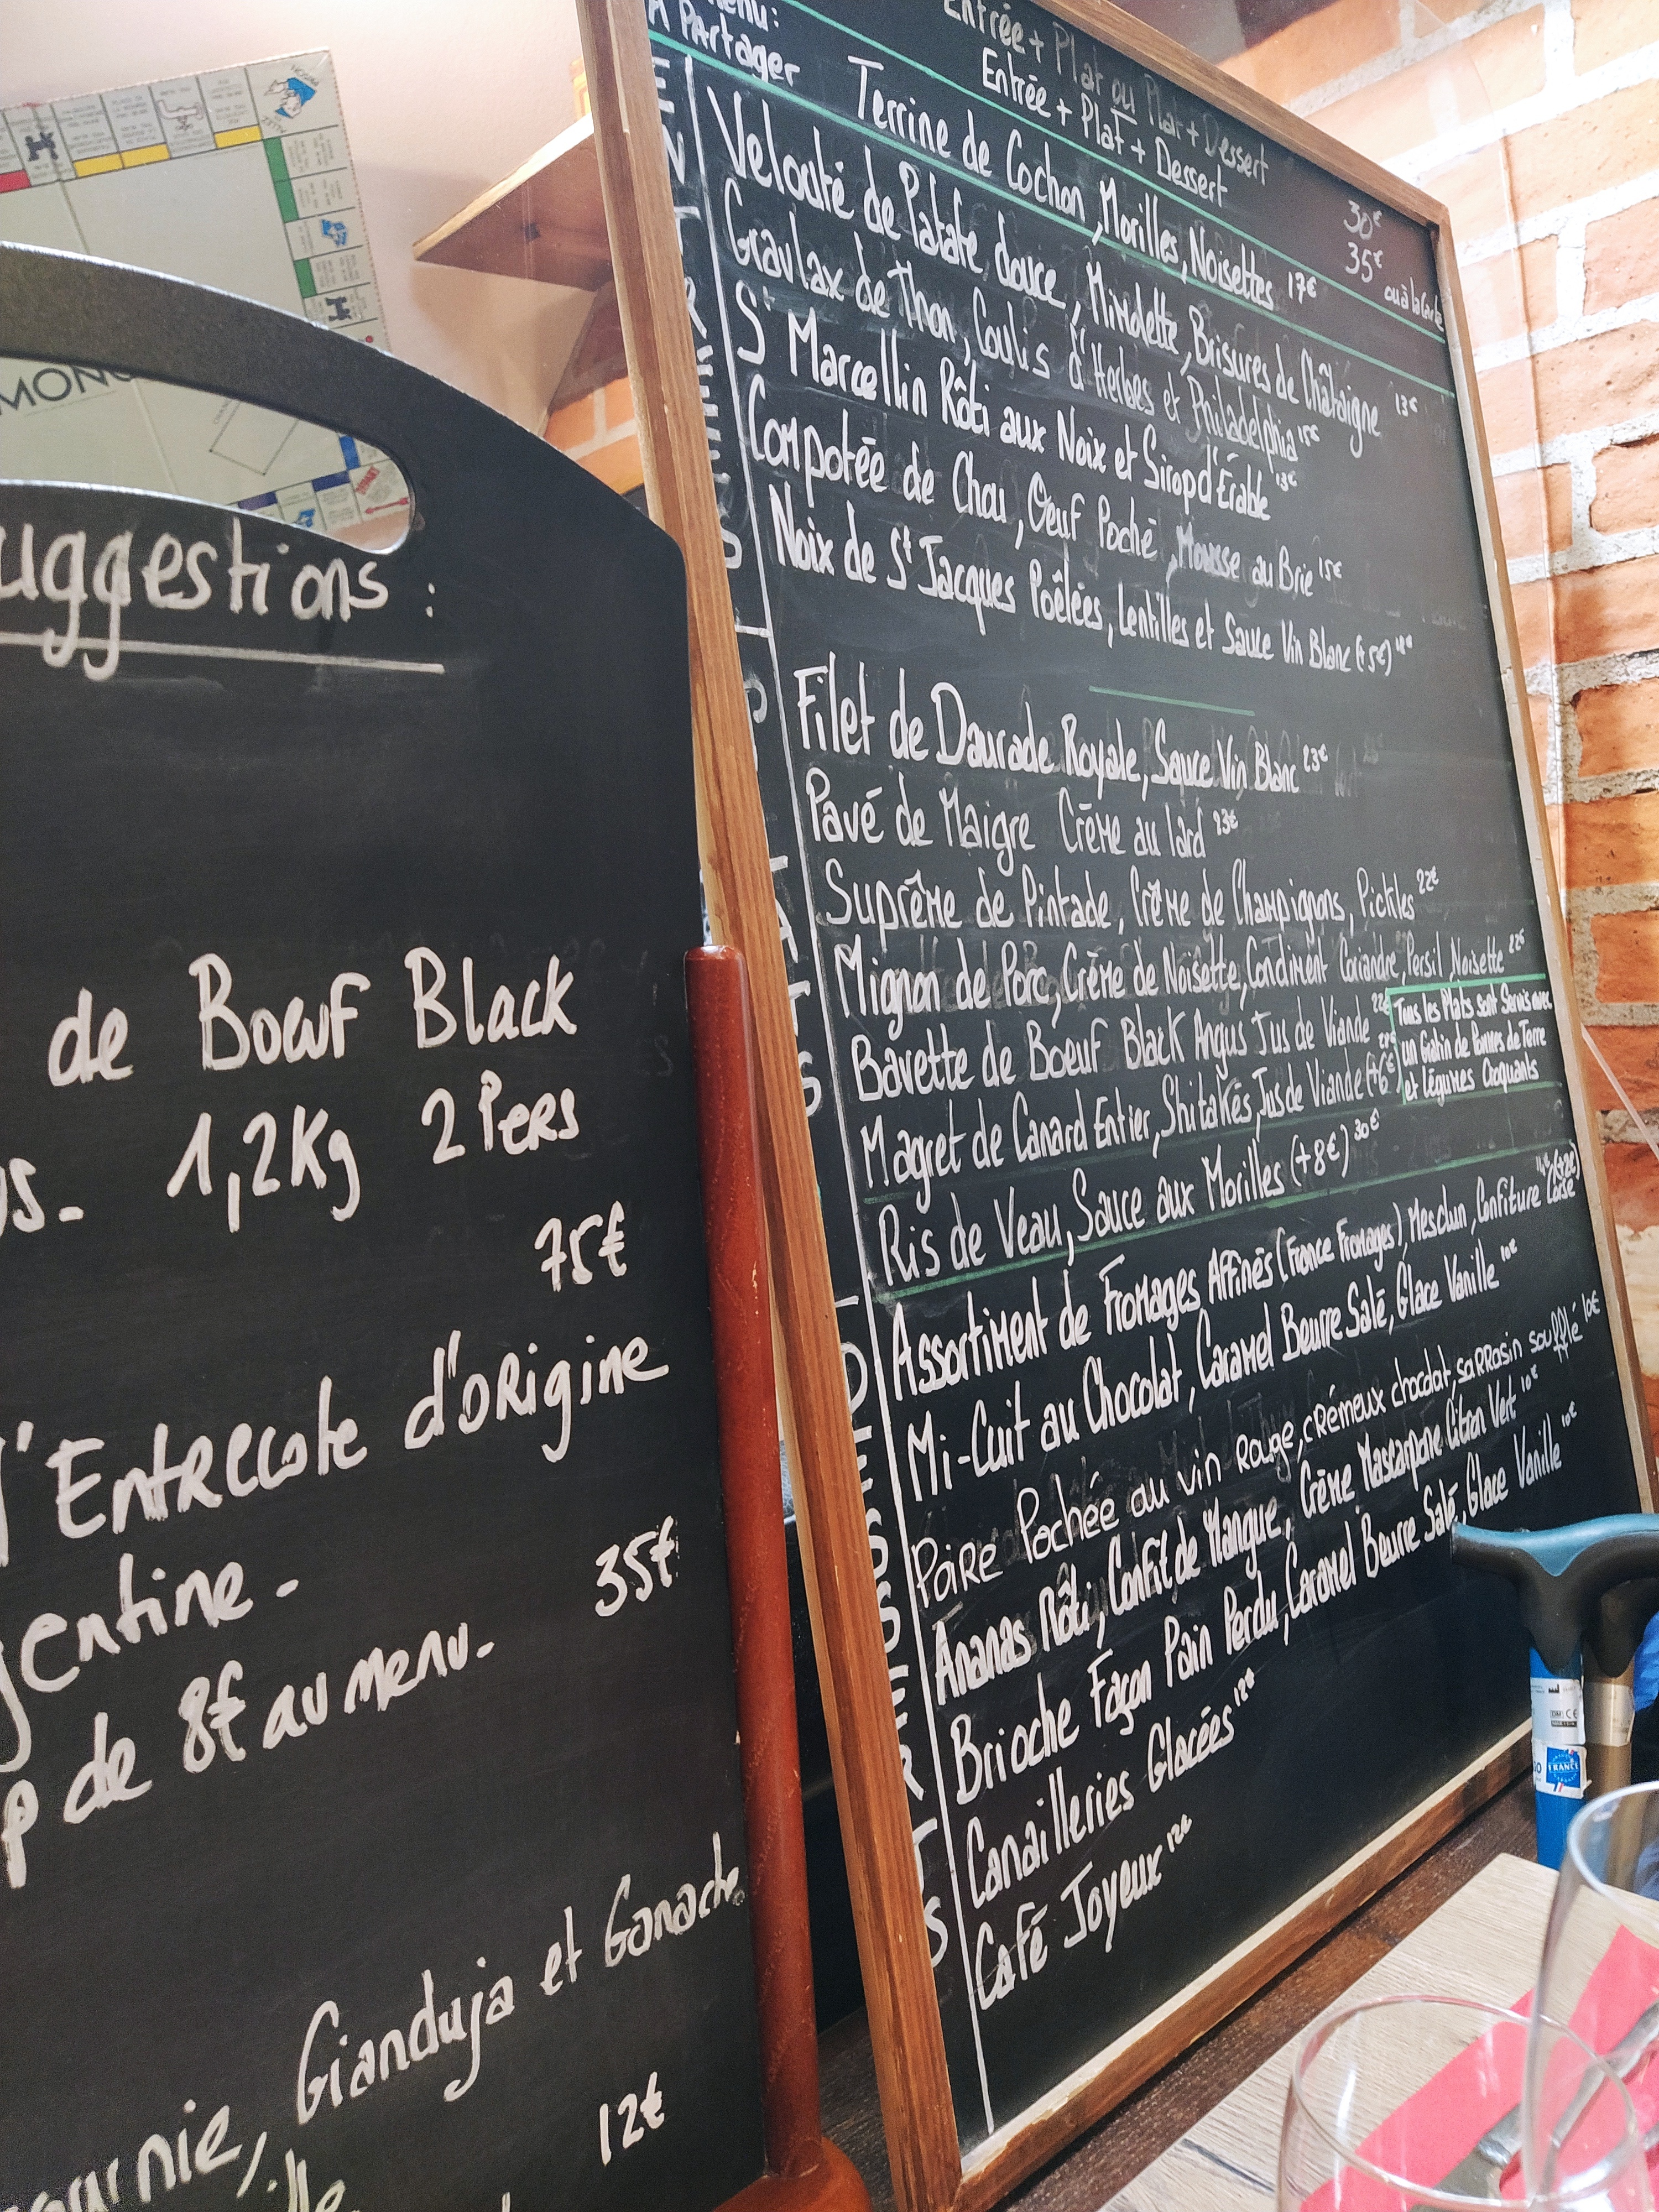 MONO
uggestions :
de Boeuf Black
us. 1,2Kg 2 Pers
75€
l'Entrecote d'origine
gentine.
35€
p de 8€ au menu.
Gianduja et Ganache
12€
Menu:
Entrée + Plat ou Plat + Dessert 30€
Entrée + Plat + Dessert 35€
ou à la Carte
A Partager
Terrine de Cochon, Morilles, Noisettes 17€
ENTREES
Velouté de Patate douce, Mimolette, Brisures de Châtaigne 13€
Gravlax de Thon, Coulis d'Herbes et Philadelphia 15€
St Marcellin Rôti aux Noix et Sirop d'Érable 13€
Compotée de Chou, Oeuf Poché, Mousse au Brie 15€
Noix de St Jacques Poêlées, Lentilles et Sauce Vin Blanc (+5€)
PLATS
Filet de Daurade Royale, Sauce Vin Blanc 23€
Pavé de Maigre Crème au lard 23€
Suprême de Pintade, Crème de Champignons, Pickles 22€
Mignon de Porc, Crème de Noisette, Condiment Coriandre, Persil, Noisette 22€
Bavette de Boeuf Black Angus Jus de Viande 22€
Magret de Canard Entier, Shitakés, Jus de Viande (+6€)
Ris de Veau, Sauce aux Morilles (+8€) 30€
Tous les Plats sont Servis avec
un Gratin de Pommes de Terre
et Légumes Croquants
DESSERTS
Assortiment de Fromages Affinés (France Fromages), Mesclun, Confiture Corse
Mi-Cuit au Chocolat, Caramel Beurre Salé, Glace Vanille 10€
Poire Pochée au vin Rouge, crémeux chocolat, sarrasin soufflé 10€
Ananas Rôti, Confit de Mangue, Crème Mascarpone Citron Vert 10€
Brioche Façon Pain Perdu, Caramel Beurre Salé, Glace Vanille 10€
Canailleries Glacées 12€
Café Joyeux 12€
FRANCE